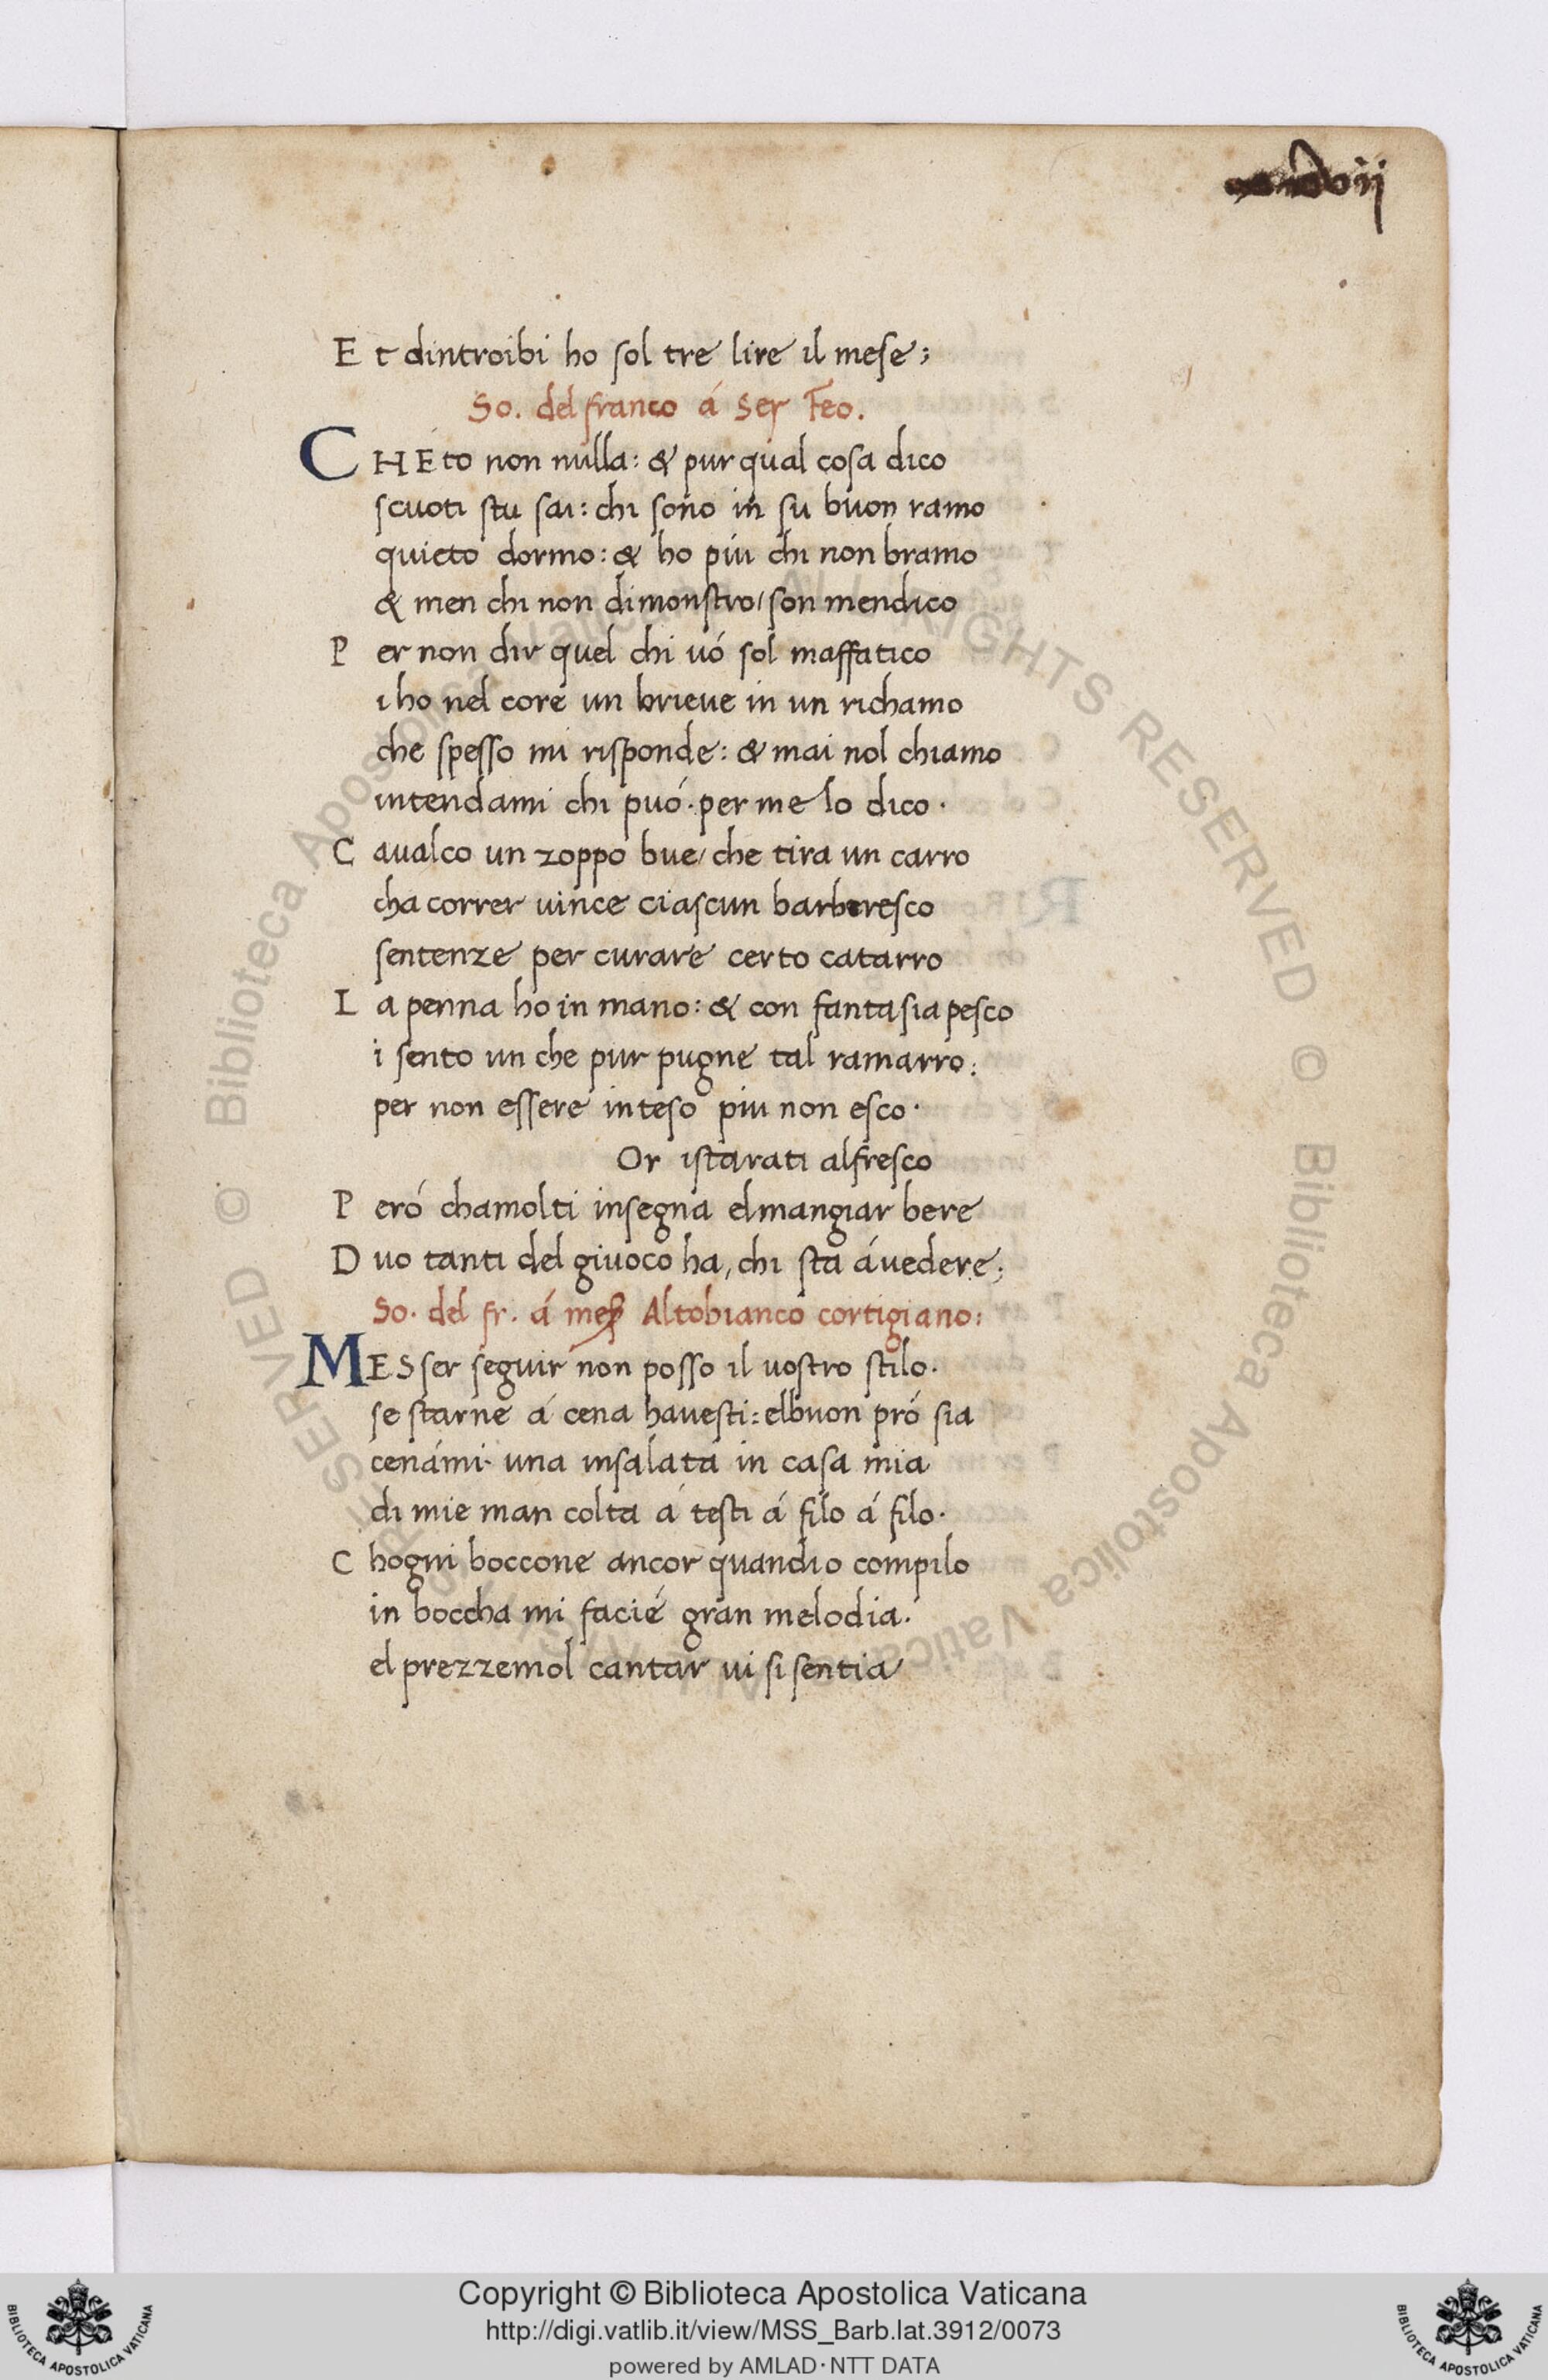 Et dintroibi ho sol tre lire il mese;
So. del franco á Ser Feo.
CHE to non nulla: & pur qual cosa dico
scuoti stu sai: chi sono in su buon ramo
quieto dormo: & ho piu chi non bramo
& men chi non dimonstro/ son mendico
Per non dir quel chi uó sol maffatico
i ho nel core un brieue in un richamo
che spesso mi risponde: & mai nol chiamo
intendami chi puó. per me lo dico.
Caualco un zoppo bue/ che tira un carro
cha correr uince ciascun barberesco
sentenze per curare certo catarro
La penna ho in mano: & con fantasia pesco
i sento un che pur pugne tal ramarro:
per non essere inteso piu non esco.
Or istarati alfresco
Peró chamolti insegna elmangiar bere
Duo tanti del giuoco ha, chi sta áuedere;
So. del fr. á mes Altobianco cortigiano:
MESser seguir non posso il uostro stilo.
se starne á cena hauesti: elbuon pró sia
cenámi una insalata in casa mia
di mie man colta á testi á filo á filo.
Chogni boccone ancor quandio compilo
in boccha mi facié gran melodia.
el prezzemol cantar ui si sentia
© Biblioteca Apostolica Vaticana ALL RIGHTS RESERVED © Biblioteca Apostolica Vaticana ALL RIGHTS RESERVED
Copyright © Biblioteca Apostolica Vaticana
http://digi.vatlib.it/view/MSS_Barb.lat.3912/0073
powered by AMLAD·NTT DATA
BIBLIOTECA APOSTOLICA VATICANA
BIBLIOTECA APOSTOLICA VATICANA